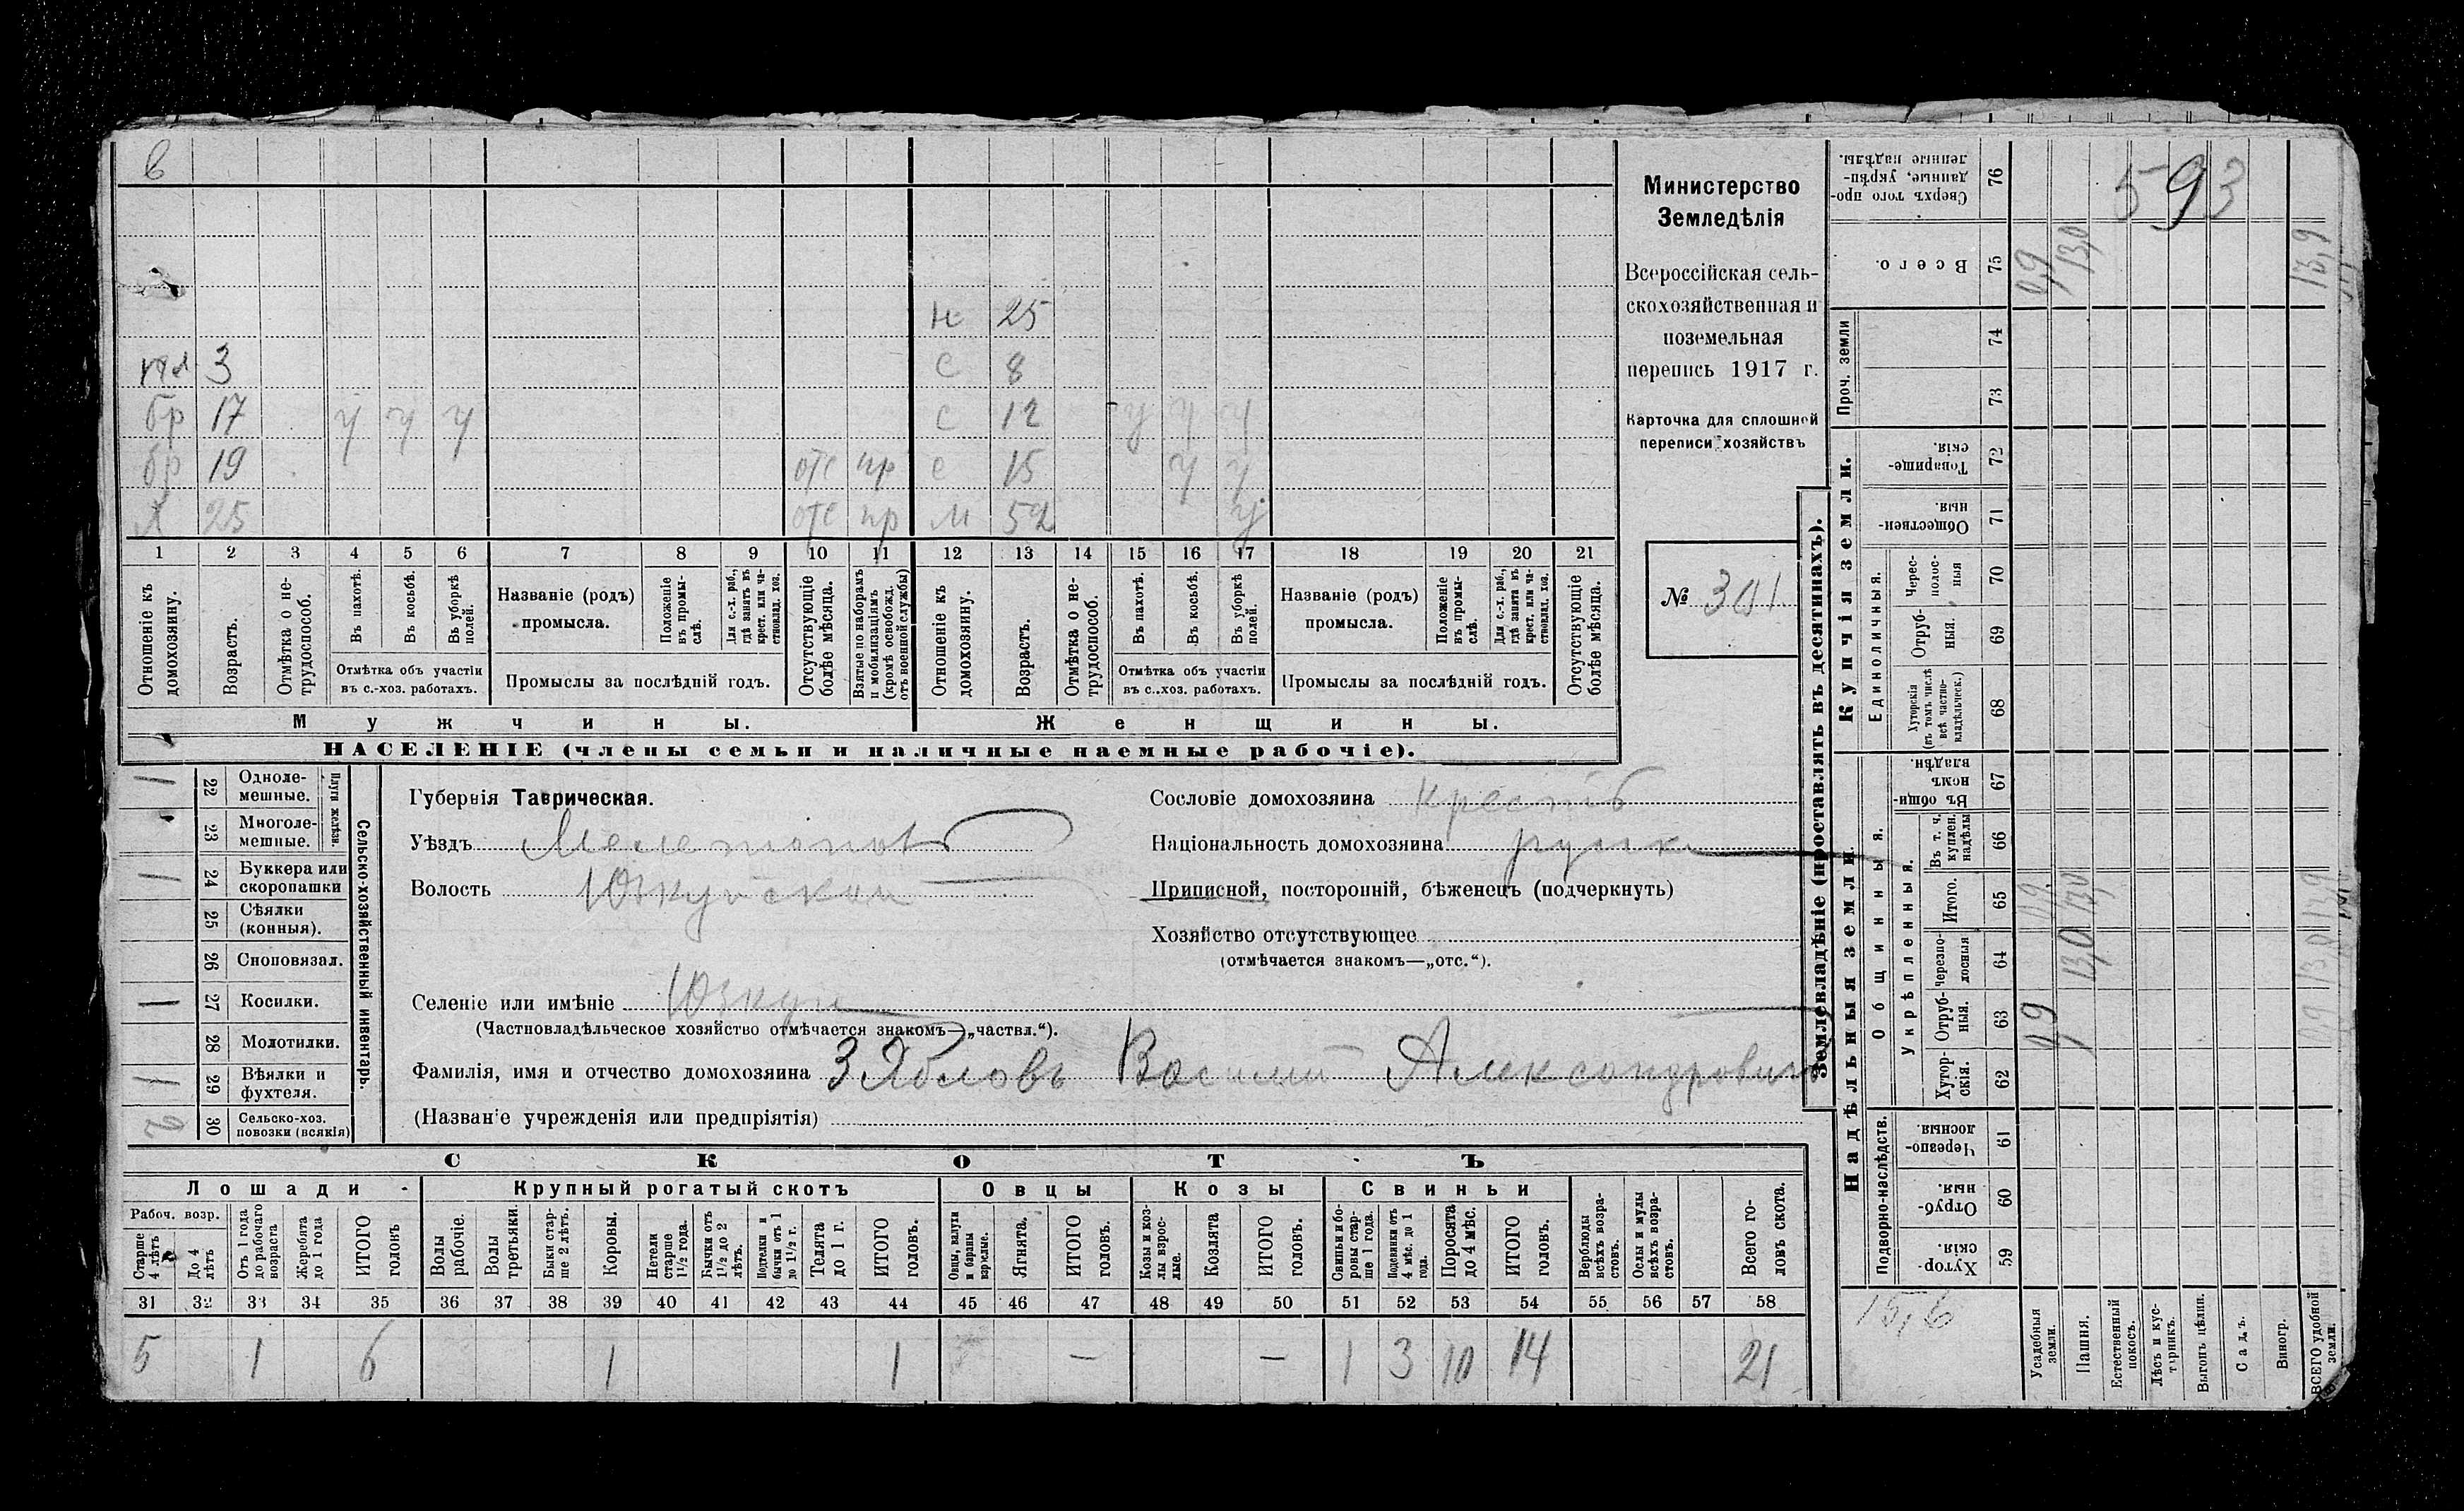 в
н 25
3 с 8
бр 17 у у у с 12 у у у
бр 19 отс пр с 15 у у
Х 25 отс пр м 52 у
1 2 3 4 5 6 7 8 9 10 11 12 13 14 15 16 17 18 19 20 21
Отношеніе къ домохозяину.
Возрастъ.
Отмѣтка о не-трудоспособ.
Въ пахотѣ.
Въ косьбѣ.
Въ уборкѣ полей.
Отмѣтка объ участіи
въ с.-хоз. работахъ.
Названіе (родъ)
промысла.
Положеніе въ промы-слѣ.
Для с.-х. раб., гдѣ занятъ въ крест. или ча-стновлад. хоз.
Промыслы за послѣдній годъ.
Отсутствующіе болѣе мѣсяца.
Взятые по наборамъ и мобилизаціямъ (кромѣ освобожд. отъ военной службы)
Отношеніе къ домохозяину.
Возрастъ.
Отмѣтка о не-трудоспособ.
Въ пахотѣ.
Въ косьбѣ.
Въ уборкѣ полей.
Отмѣтка объ участіи
въ с.-хоз. работахъ.
Названіе (родъ)
промысла.
Положеніе въ промы-слѣ.
Для с.-х. раб., гдѣ занята въ крест. или ча-стновлад. хоз.
Промыслы за послѣдній годъ.
Отсутствующіе болѣе мѣсяца.
Мужчины. Женщины.
НАСЕЛЕНІЕ (члены семьи и наличные наемные рабочіе).
Министерство
Земледѣлія
Всероссійская сель-
скохозяйственная и
поземельная
перепись 1917 г.
Карточка для сплошной
переписи хозяйствъ
№ 301
Сельско-хозяйственный инвентарь.
Плуги желѣзн.
1 22 Одноле-мешные.
23 Многоле-мешные.
1 24 Буккера или скоропашки
25 Сѣялки (конныя).
26 Сноповязал.
1 27 Косилки.
28 Молотилки.
1 29 Вѣялки и фухтеля.
2 30 Сельско-хоз. повозки (всякія)
Губернія Таврическая.
Уѣздъ Мелетопов
Волость Юзкуйской
Селеніе или имѣніе Юзкуи
(Частновладѣльческое хозяйство отмѣчается знакомъ—„частвл.“).
Фамилія, имя и отчество домохозяина Зябловъ Василий Александрович
(Названіе учрежденія или предпріятія)
Сословіе домохозяина крестьб
Національность домохозяина руск
Приписной, посторонній, бѣженецъ (подчеркнуть)
Хозяйство отсутствующее
(отмѣчается знакомъ—„отс.“).
СКОТЪ
Лошади Крупный рогатый скотъ Овцы Козы Свиньи
Рабоч. возр.
Старше 4 лѣтъ
До 4 лѣтъ
Отъ 1 года до рабочаго возраста
Жеребята до 1 года
ИТОГО головъ
Волы рабочіе.
Волы третьяки.
Быки стар-ше 2 лѣтъ.
Коровы.
Нетели старше 1½ года.
Бычки отъ 1½ до 2 лѣтъ.
Подтелки и бычки отъ 1 до 1½ г.
Телята до 1 г.
ИТОГО головъ.
Овцы, валухи и бараны взрослые.
Ягнята.
ИТОГО головъ.
Козы и коз-лы взрос-лые.
Козлята
ИТОГО головъ.
Свиньи и бо-ровы стар-ше 1 года.
Подсвинки отъ 4 мѣс. до 1 года.
Поросята до 4 мѣс.
ИТОГО головъ.
Верблюды всѣхъ возра-стовъ.
Ослы и мулы всѣхъ возра-стовъ.
Всего го-ловъ скота.
31 32 33 34 35 36 37 38 39 40 41 42 43 44 45 46 47 48 49 50 51 52 53 54 55 56 57 58
5 1 6 1 1 — — 1 3 10 14 21
Землевладѣніе (проставлять въ десятинахъ).
Надѣльныя земли. Купчія земли.
Проч. земли
Подворно-наслѣдств.
Общинныя.
Укрѣпленныя.
Единоличныя.
Сверхъ того про-данные, укрѣп-ленные надѣлы. 76
593
Всего. 75 0,9 13,0 13,9
74
73
Товарище-скія. 72
Обществен-ныя. 71
Черес-полос-ныя 70
Отруб-ныя. 69
Хуторскія (въ томъ числѣ всѣ частно-владѣльческ.) 68
Въ общи-номъ владѣн. 67
Въ т. ч. куплен. надѣлы 66
Итого. 65 0,9 13,0 13,9
Черезпо-лосныя 64 13,0 13,0
Отруб-ныя. 63 0,9 0,9
Хутор-скія. 62
Черезпо-лосныя. 61
Отруб-ныя. 60
Хутор-скія. 59
15,6
Усадебныя земли.
Пашня.
Естественный покосъ.
Лѣсъ и кус-тарникъ.
Выгонъ цѣлин.
Садъ.
Виногр.
ВСЕГО удобной земли.